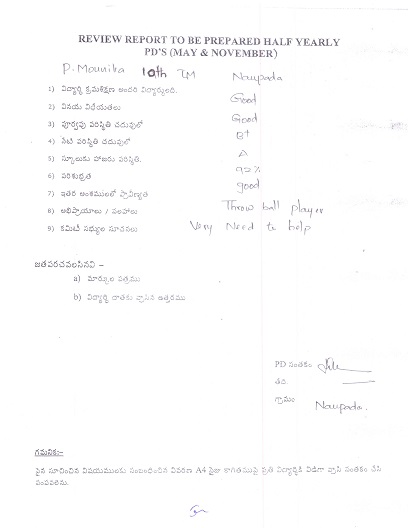 REVIEW REPORT TO BE PREPARED HALF YEARLY
PD'S (MAY & NOVEMBER)
P. Mounika 10th TM Naupada
1) విద్యార్థి క్రమశిక్షణ అందరి విద్యార్థులది. Good
2) వినయ విధేయతలు Good
3) పూర్వపు పరిస్థితి చదువులో B+
4) నేటి పరిస్థితి చదువులో A
5) స్కూలుకు హాజరు పరిస్థితి. 92%
6) పరిశుభ్రత good
7) ఇతర అంశములలో ప్రావీణ్యత Throw ball player
8) అభిప్రాయాలు / సలహాలు
9) కమిటీ సభ్యుల సూచనలు Very Need to help
జతపరచవలసినవి –
a) మార్కుల పత్రము
b) విద్యార్థి దాతకు వ్రాసిన ఉత్తరము
PD సంతకం
తేది.
గ్రామం Naupada.
గమనిక:-
పైన సూచించిన విషయములకు సంబంధించిన వివరణ A4 సైజు కాగితముపై ప్రతి విద్యార్థికి విడిగా వ్రాసి సంతకం చేసి
పంపవలెను.